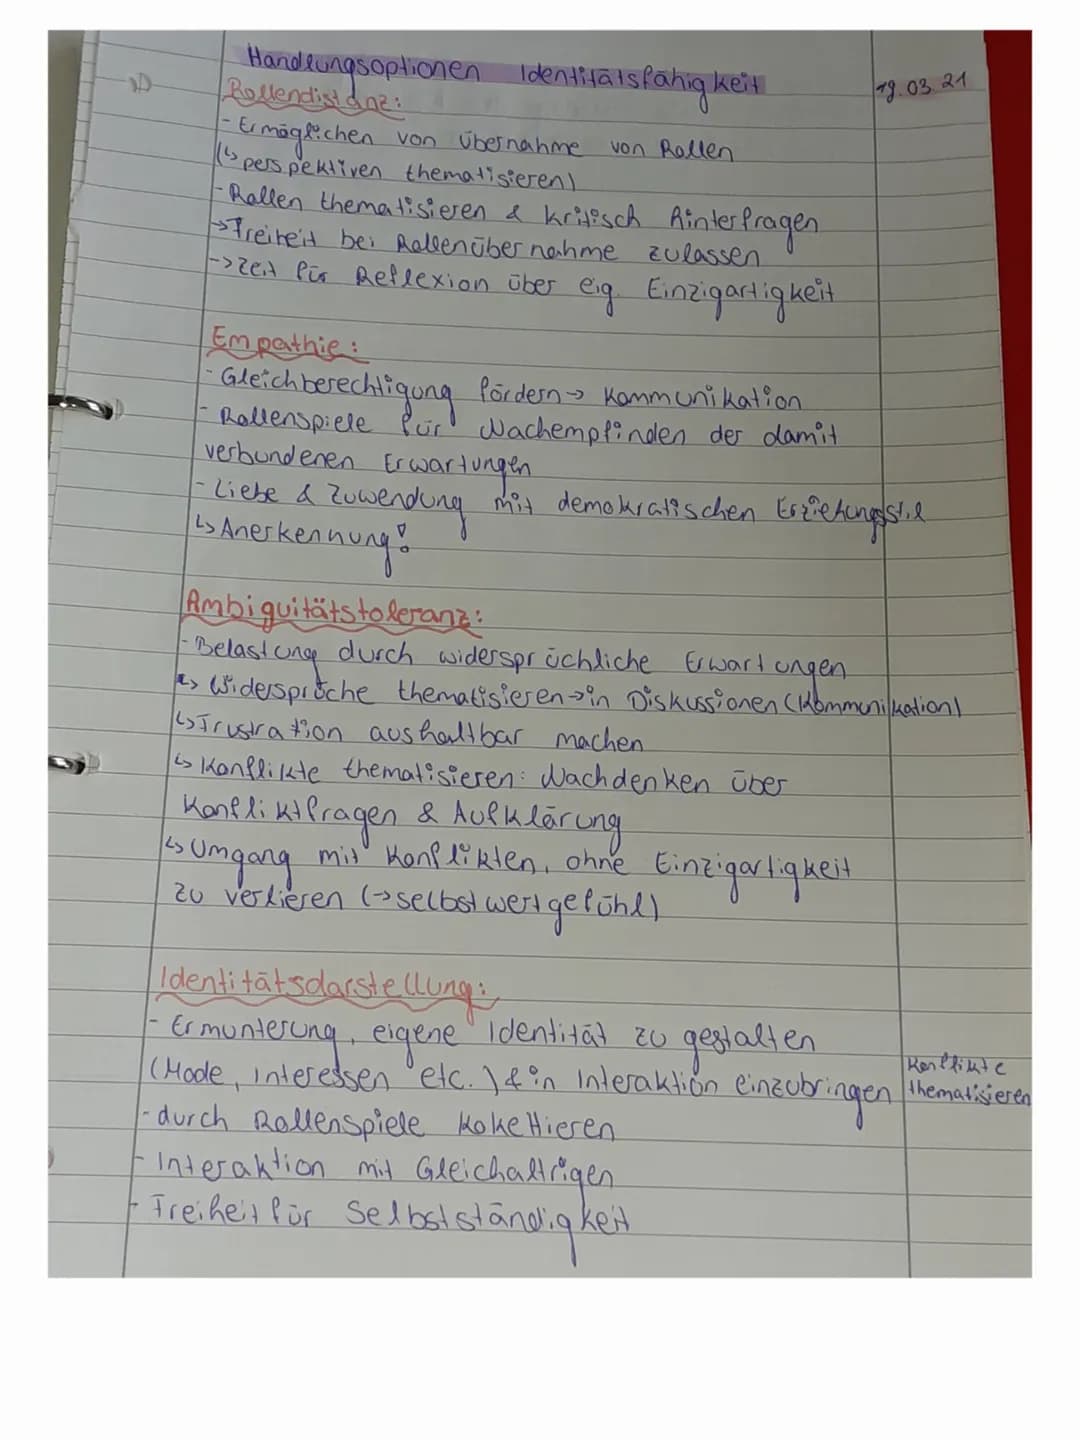 Handlungsoptionen Identitätsfähigkeit
19.03.21
1)
Rollendistanz:
- Ermöglichen von Übernahme von Rollen
(↳ perspektiven thematisieren)
- Rollen thematisieren & kritisch hinterfragen
→ Freiheit bei Rollenübernahme zulassen
-> Zeit für Reflexion über eig. Einzigartigkeit
Empathie:
- Gleichberechtigung fördern → Kommunikation
- Rollenspiele für Nachempfinden der damit
verbundenen Erwartungen
- Liebe & Zuwendung mit demokratischen Erziehungsstil
↳ Anerkennung!
Ambiguitätstoleranz:
- Belastung durch widersprüchliche Erwartungen
↳ Widersprüche thematisieren → in Diskussionen (Kommunikation)
↳ Frustration aushaltbar machen
↳ Konflikte thematisieren: Nachdenken über
Konfliktfragen & Aufklärung
↳ Umgang mit Konflikten, ohne Einzigartigkeit
zu verlieren (→ selbstwertgefühl)
Identitätsdarstellung:
- Ermunterung, eigene Identität zu gestalten
(Mode, Interessen etc.) & in Interaktion einzubringen
Konflikte
thematisieren
- durch Rollenspiele kokettieren
- Interaktion mit Gleichaltrigen
- Freiheit für Selbstständigkeit